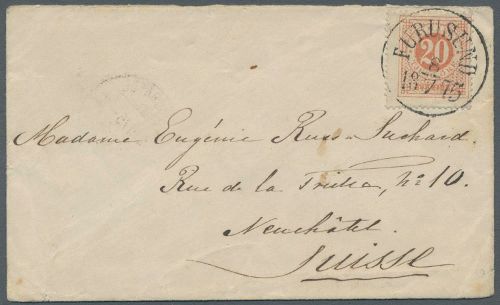 FURUSUND
8
18 7 75
20
Madame Eugénie Russ-Suchard.
Rue de la No 10.
Neuchâtel.
Suisse